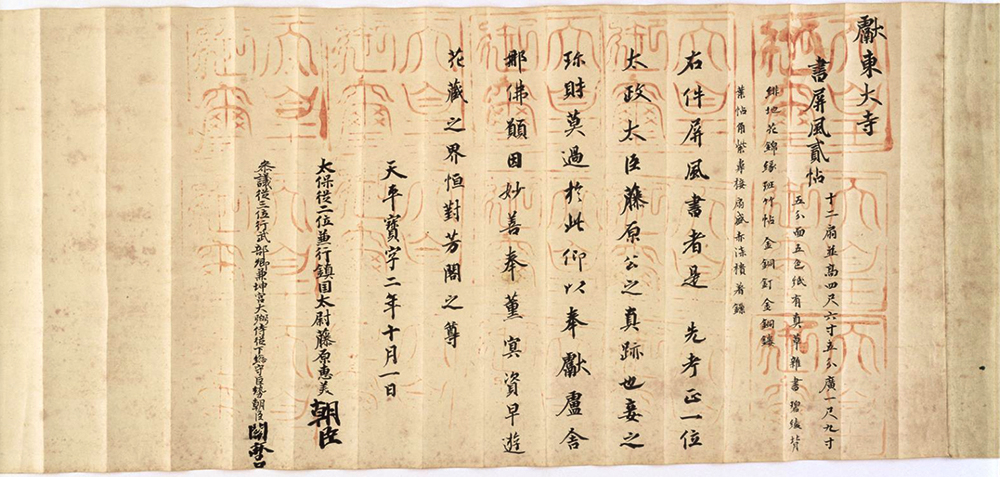 獻東大寺
書屏風貳帖
十二扇並高四尺六寸五分廣一尺九寸
五分面五色紙有真草雜書碧綾背
緋地花錦緣斑竹帖金銅釘金銅鑲
葉帖角紫皮接扇盛赤漆櫃着鏁
右件屏風書者是 先考正一位
太政太臣藤原公之真跡也妾之
珎財莫過於此仰以奉獻盧舍
那佛願因妙善奉薰冥資早遊
花藏之界恒對芳閣之尊
天平寶字二年十月一日
太保從二位兼行鎮國太尉藤原惠美朝臣
參議從三位行武部卿兼坤宮大弼侍從下総守巨勢朝臣關麻呂
天皇御璽